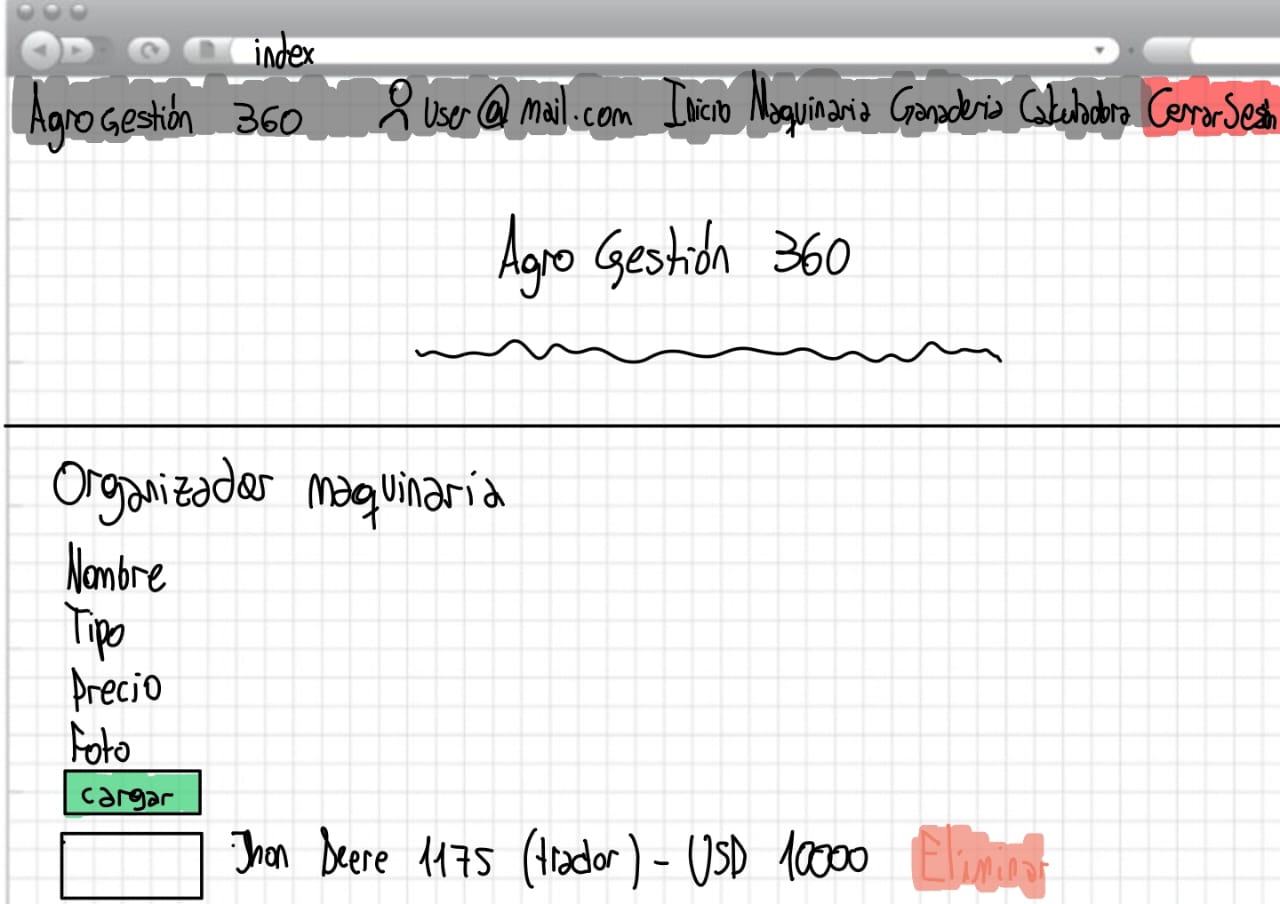 index
AgroGestión 360 User@mail.com Inicio Maquinaria Ganaderia Calculadora Cerrar Sesión
Agro Gestión 360
Organizador maquinaria
Nombre
Tipo
Precio
Foto
cargar
Jhon Deere 1175 (trador) - USD 10000 Eliminar